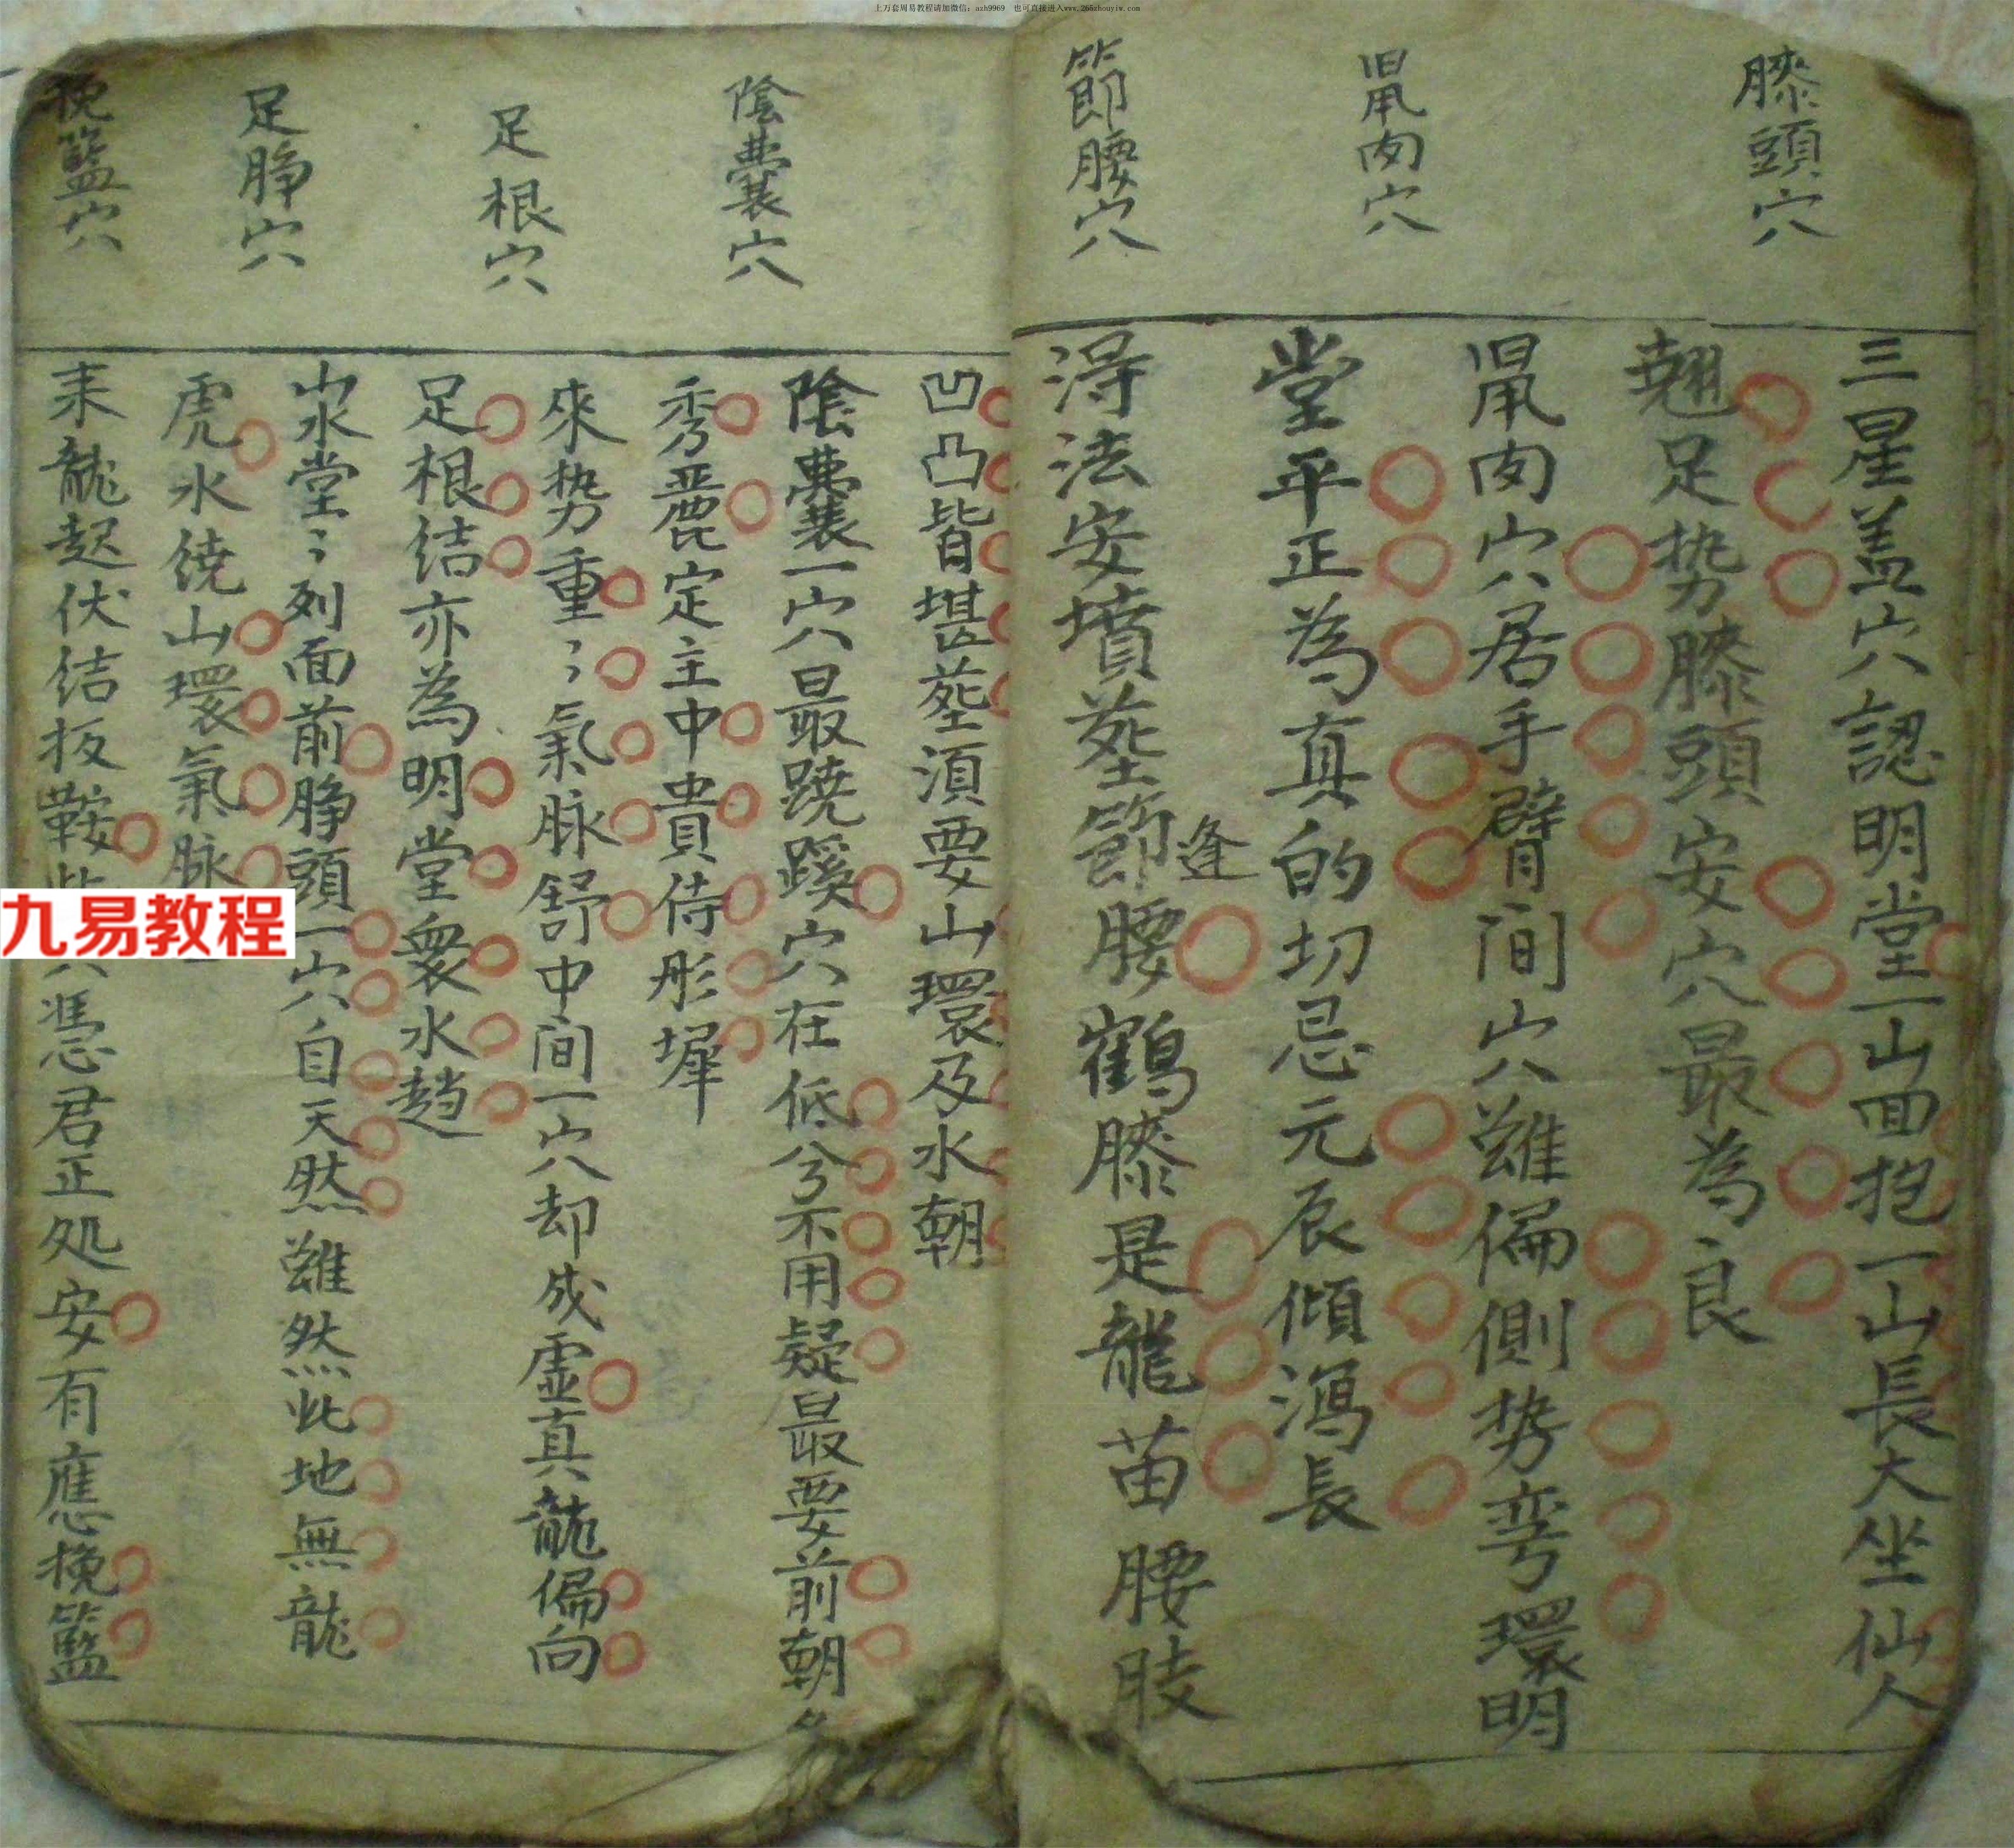 上万套周易教程请加微信：azh9969　也可直接进入www.266zhouyiw.com
膝頭穴
肉穴
節腰穴
三星盖穴認明堂一山面抱一山長大坐仙人
翹足势膝頭安穴最為良
肉穴居手臂间穴雖偏側势弯環明
堂平正為真的切忌元辰傾瀉長
逢
得法安墳塟節腰鶴膝是龍苗腰肢
陰囊穴
足根穴
足睁穴
挽籃穴
凹凸皆堪塟須要山環及水朝
陰囊一穴最蹺蹊穴在低兮不用疑最要前朝
秀麗定主中貴侍彤墀
來势重〻氣脉舒中间一穴却成虚真龍偏向
足根结亦為明堂衆水趋
山水堂〻列面前睁頭一穴自天然雖然此地無龍
虎水绕山環氣脉
来龍起伏结扳鞍此穴凴君正処安有應挽籃
九易教程